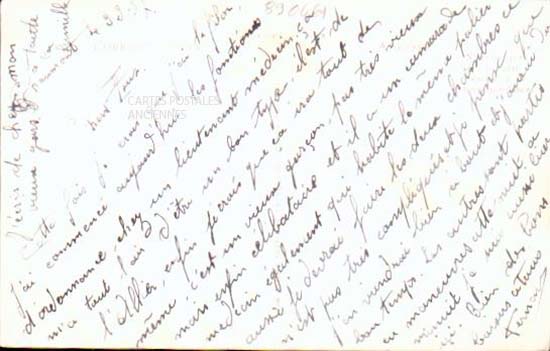 J'écris de chez mon
vieux gars
Cette fois je crois que j'ai le filon
j'ai commencé aujourd'hui les fonctions
d'ordonnance chez un lieutenant médecin. Il
m'a tout l'air d'être un bon type il est de
l'Allier, enfin je crois que ça ira tout de
même, c'est un vieux garçon pas très vieux
mais enfin célibataire et il a un camarade
médecin également qui habite le même palier
aussi je devrai faire les deux chambres ce
n'est pas très compliqué et je pense que
j'en viendrai bien à bout et j'aurai du
bon temps. Les autres sont partis
en manœuvres cette nuit à
minuit je
Bien des
baisers à tous
CARTES POSTALES
ANCIENNES